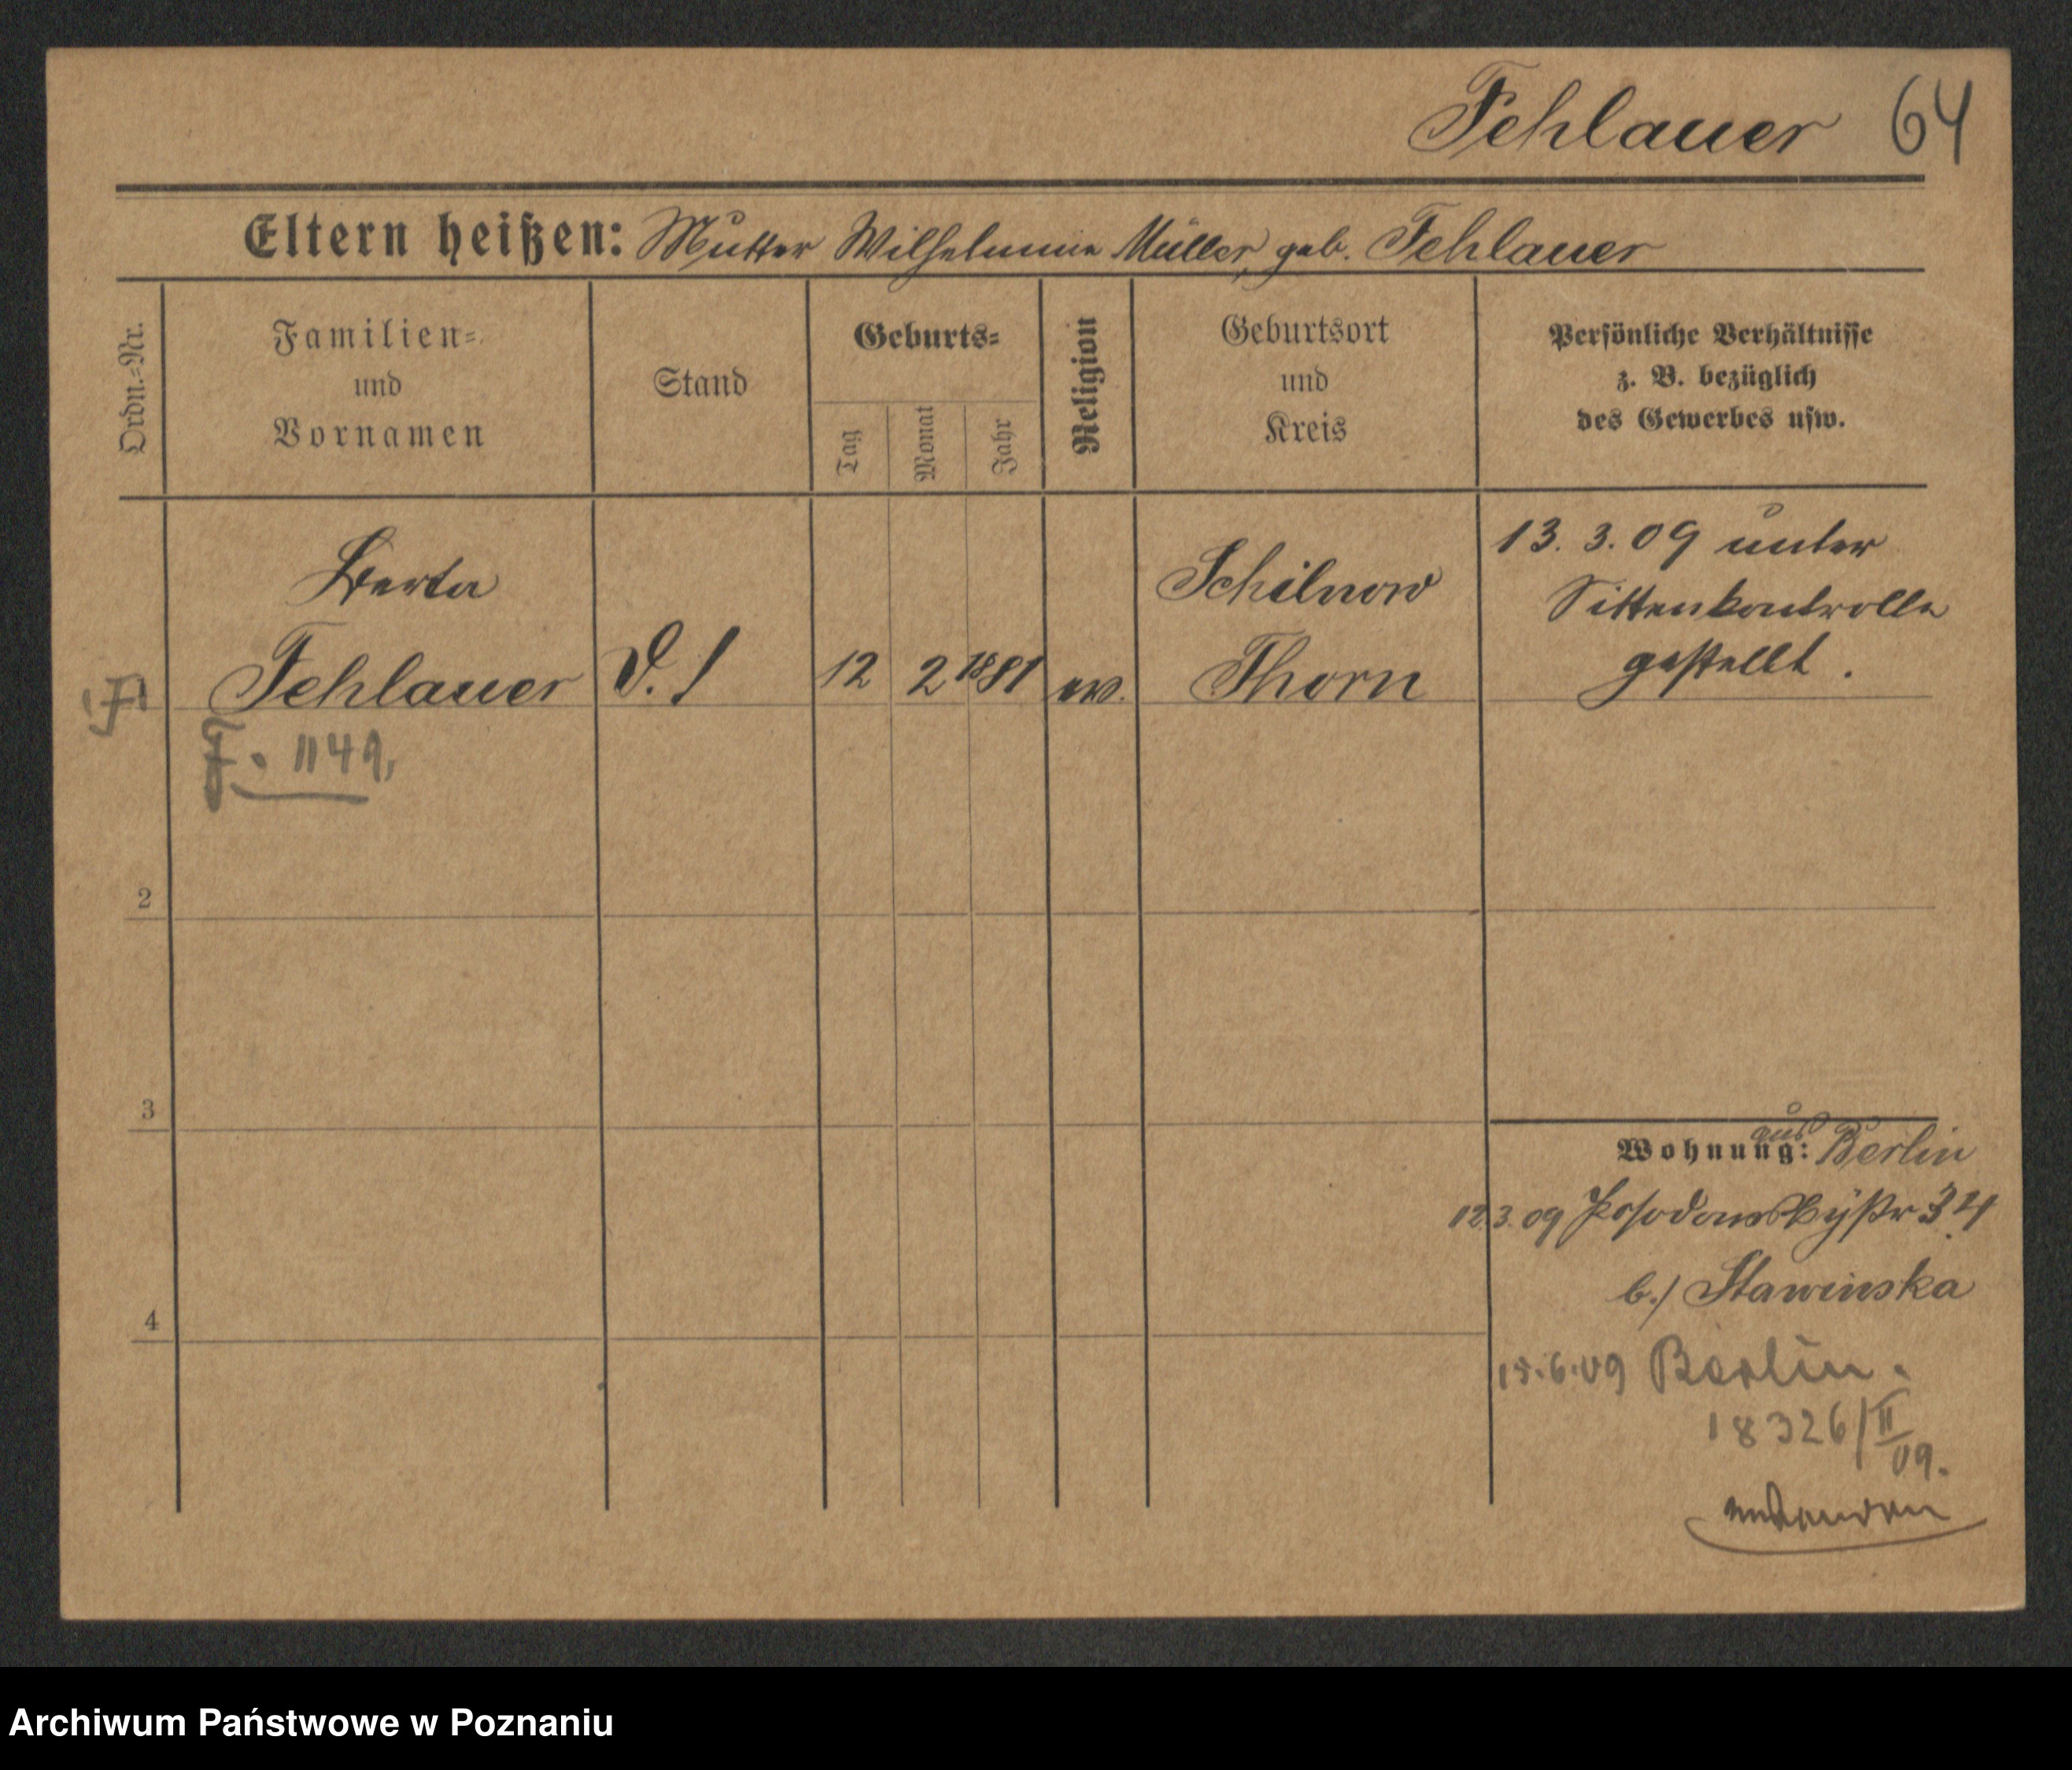 Fehlauer 64
Eltern heißen: Mutter Wilhelmine Müller, geb. Fehlauer
Ordn.=Nr.
Familien=
und
Vornamen
Stand
Geburts=
Tag
Monat
Jahr
Religion
Geburtsort
und
Kreis
Persönliche Verhältnisse
z. B. bezüglich
des Gewerbes usw.
Berta
Fehlauer
12 2 1881 ev.
Schilnow
Thorn
13. 3. 09 unter
Sittenkontrolle
gestellt.
1149.
2
3
4
Wohnung: aus Berlin
12.3.09 34
b./ Stawinska
15.6.09 Berlin.
18326/II
09.
Archiwum Państwowe w Poznaniu